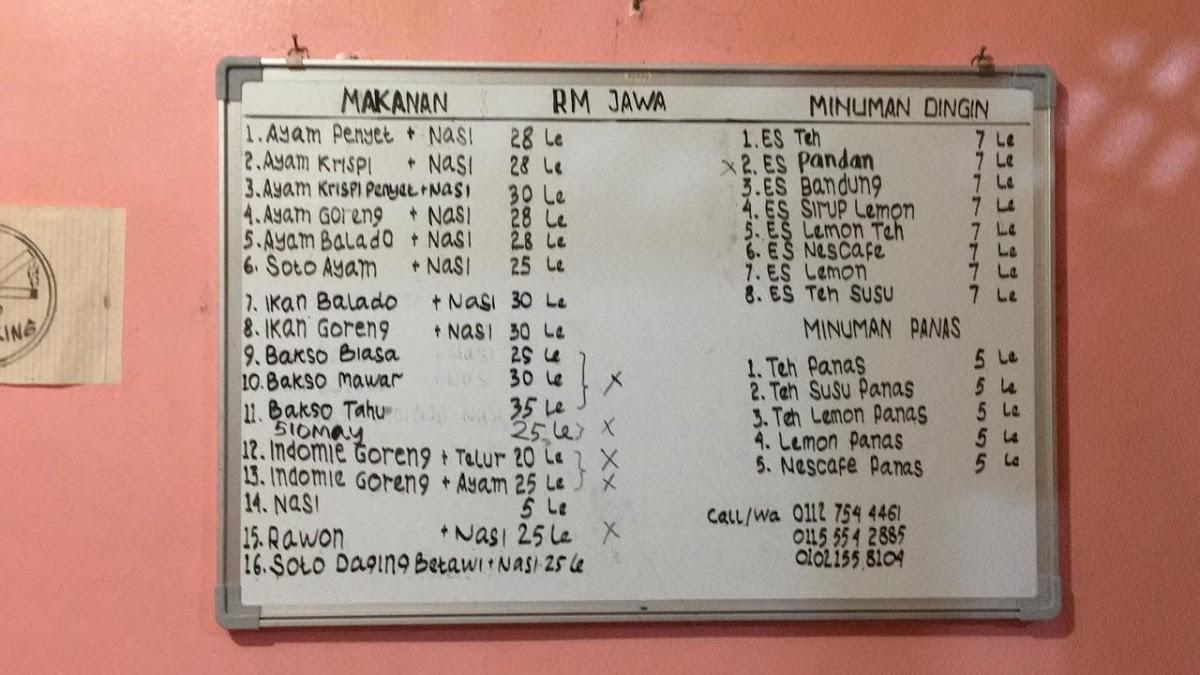 MAKANAN RM JAWA
1. Ayam Penyet + Nasi 28 Le
2. Ayam Krispi + Nasi 28 Le
3. Ayam Krispi Penyet + Nasi 30 Le
4. Ayam Goreng + Nasi 28 Le
5. Ayam Balado + Nasi 28 Le
6. Soto Ayam + Nasi 25 Le
7. Ikan Balado + Nasi 30 Le
8. Ikan Goreng + Nasi 30 Le
9. Bakso Biasa 25 Le
10. Bakso Mawar 30 Le } X
11. Bakso Tahu 35 Le
Siomay 25 Le } X
12. Indomie Goreng + Telur 20 Le } X
13. Indomie Goreng + Ayam 25 Le } X
14. Nasi 5 Le
15. Rawon + Nasi 25 Le X
16. Soto Daging Betawi + Nasi 25 Le
MINUMAN DINGIN
1. ES Teh 7 Le
X 2. ES Pandan 7 Le
3. ES Bandung 7 Le
4. ES Sirup Lemon 7 Le
5. ES Lemon Teh 7 Le
6. ES Nescafe 7 Le
7. ES Lemon 7 Le
8. ES Teh Susu 7 Le
MINUMAN PANAS
1. Teh Panas 5 Le
2. Teh Susu Panas 5 Le
3. Teh Lemon Panas 5 Le
4. Lemon Panas 5 Le
5. Nescafe Panas 5 Le
Call/Wa 0112 754 4461
0115 554 2885
0102155 8109